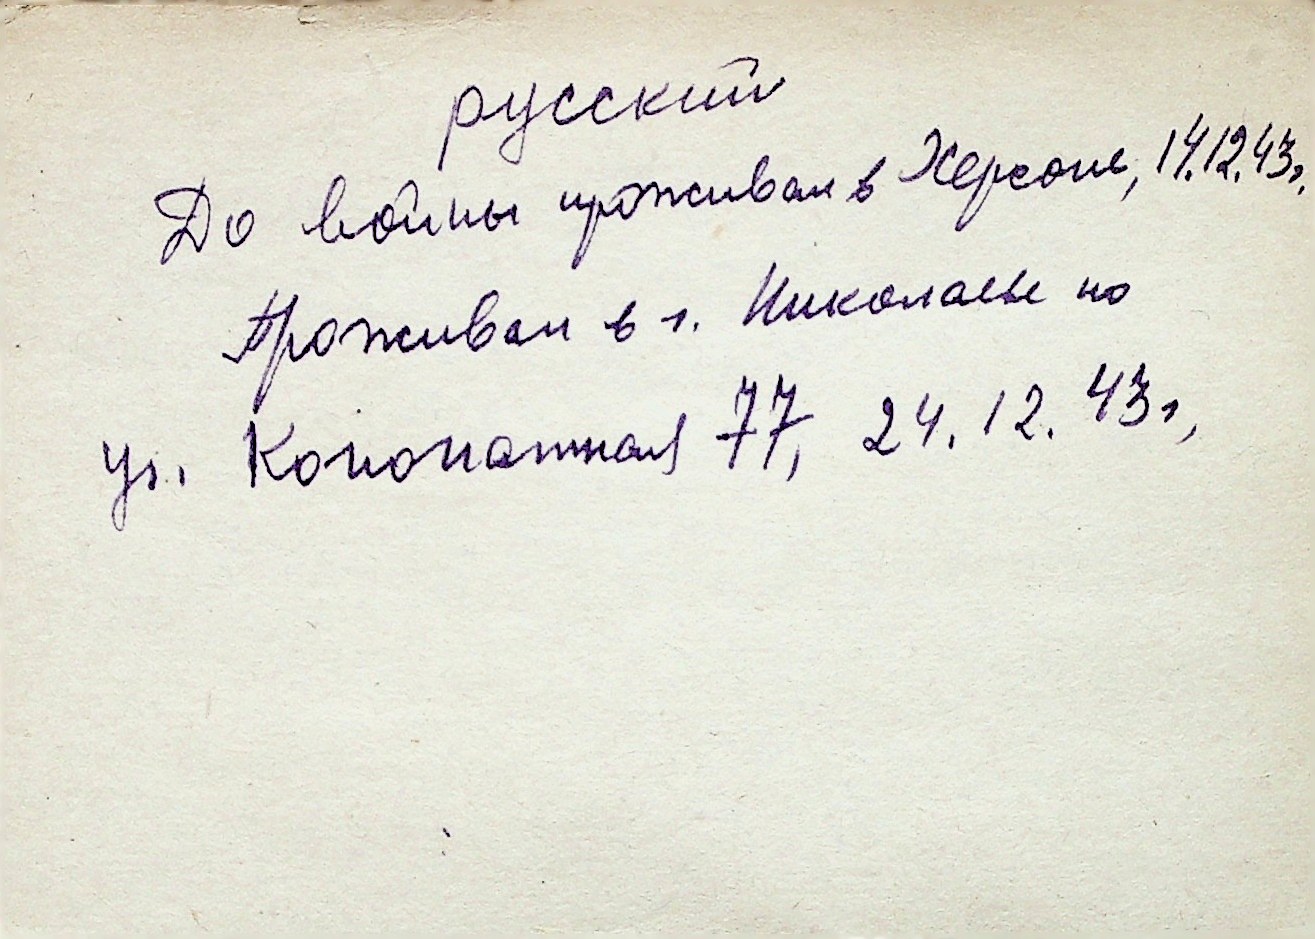 русский
До войны проживал в Херсоне, 14.12.43г.
Проживал в г. Николаеве по
ул. Конопатная 77, 24.12.43г,